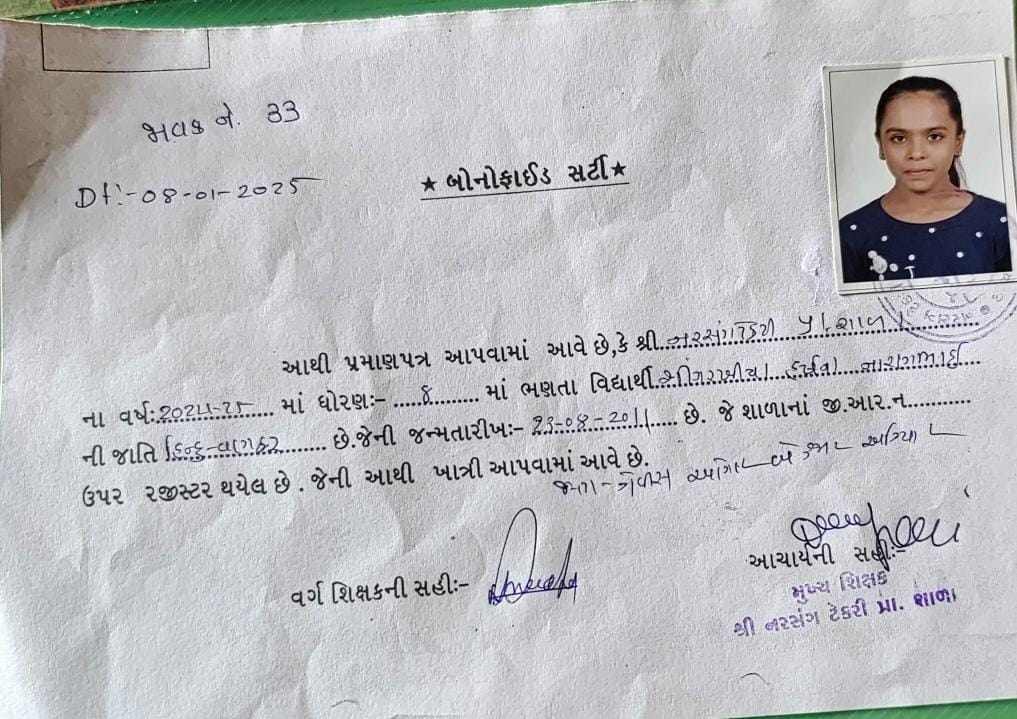 જાવક નં. 33
Dt:-08-01-2025
★ બોનોફાઈડ સર્ટી ★
આથી પ્રમાણપત્ર આપવામાં આવે છે,કે શ્રી નરસંગટેકરી પ્રા.શાળા
ના વર્ષ:2024-25 માં ધોરણ:- 8 માં ભણતા વિદ્યાર્થી
ની જાતિ હિન્દુ-વણકર છે.જેની જન્મતારીખ:- 23-08-2011 છે. જે શાળાનાં જી.આર.ન
ઉપર રજીસ્ટર થયેલ છે. જેની આથી ખાત્રી આપવામાં આવે છે.
વર્ગ શિક્ષકની સહી:-
આચાર્યની સહી:-
મુખ્ય શિક્ષક
શ્રી નરસંગ ટેકરી પ્રા. શાળા